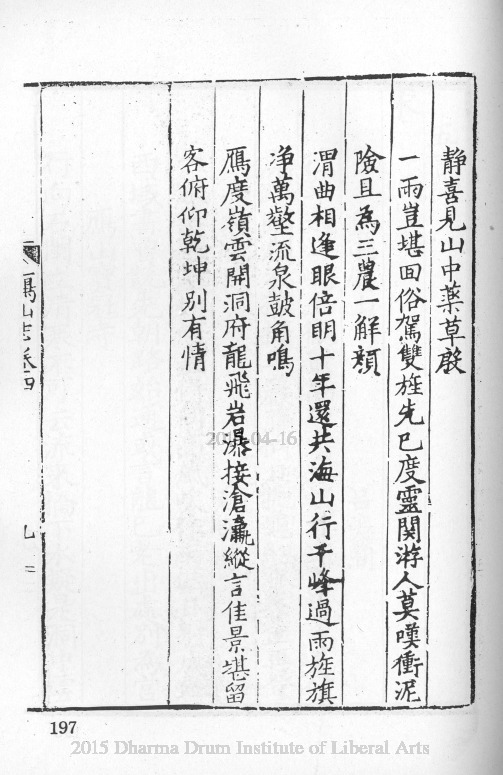 靜喜見山中藥草殷
一雨豈堪回俗駕雙旌先已度靈関游人莫嘆衝泥
險且為三農一解顔
渭曲相逢眼倍明十年還共海山行千峰過雨旌旗
净萬壑流泉鼓角鳴
鴈度嶺雲開洞府龍飛岩瀑接滄瀛縱言佳景堪留
客俯仰乾坤別有情
山志卷四
九
197
2015-04-16
2015 Dharma Drum Institute of Liberal Arts